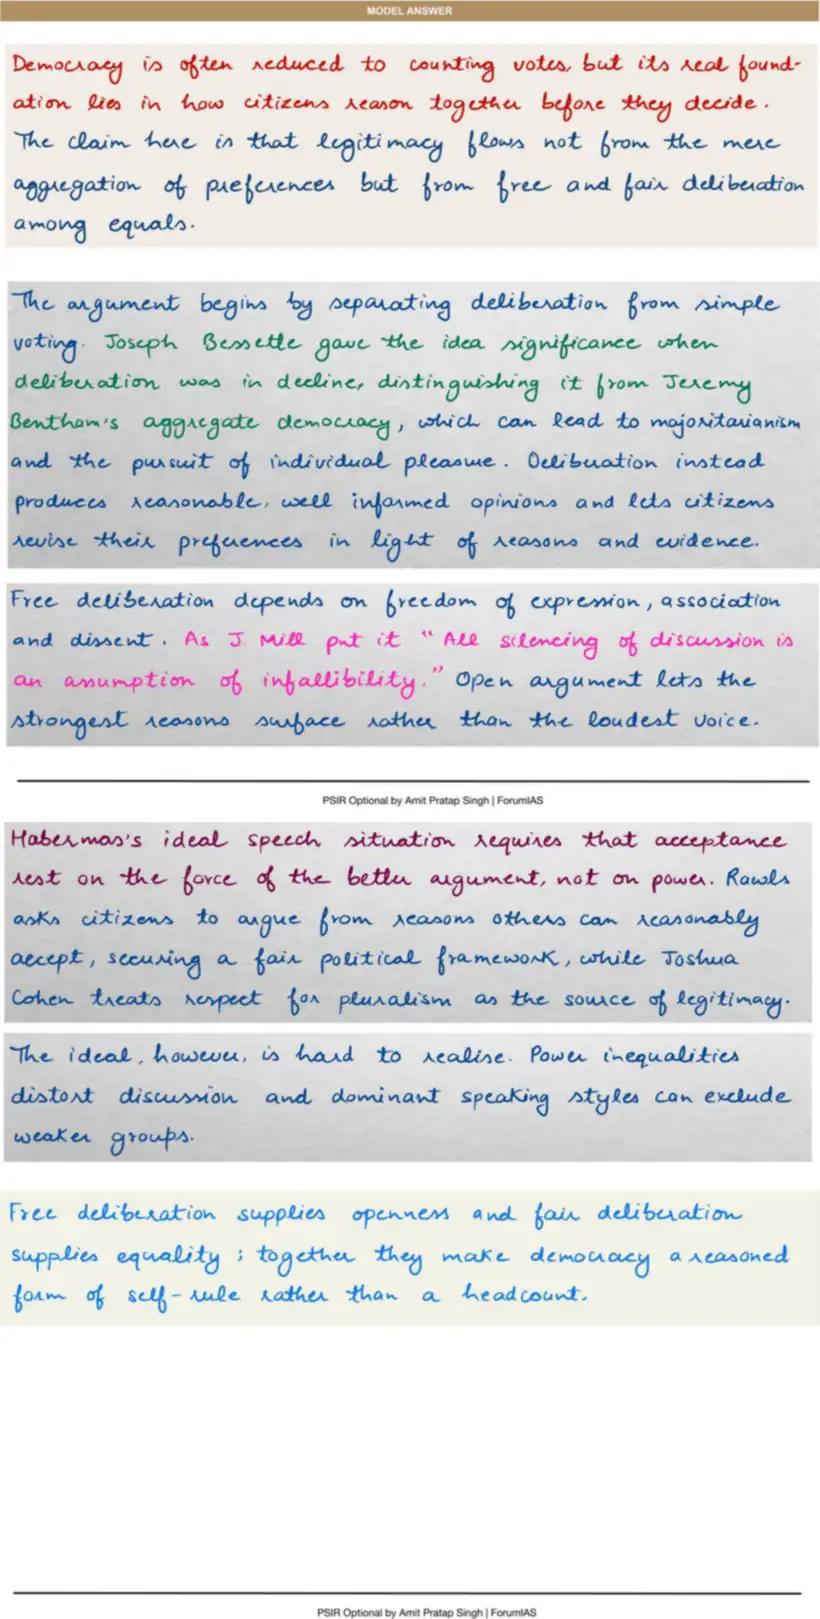 MODEL ANSWER
Democracy is often reduced to counting votes, but its real found-
ation lies in how citizens reason together before they decide.
The claim here is that legitimacy flows not from the mere
aggregation of preferences but from free and fair deliberation
among equals.
The argument begins by separating deliberation from simple
voting. Joseph Bessette gave the idea significance when
deliberation was in decline, distinguishing it from Jeremy
Bentham's aggregate democracy, which can lead to majoritarianism
and the pursuit of individual pleasure. Deliberation instead
produces reasonable, well informed opinions and lets citizens
revise their preferences in light of reasons and evidence.
Free deliberation depends on freedom of expression, association
and dissent. As J. Mill put it "All silencing of discussion is
an assumption of infallibility." Open argument lets the
strongest reasons surface rather than the loudest voice.
PSIR Optional by Amit Pratap Singh | ForumIAS
Habermas's ideal speech situation requires that acceptance
rest on the force of the better argument, not on power. Rawls
asks citizens to argue from reasons others can reasonably
accept, securing a fair political framework, while Joshua
Cohen treats respect for pluralism as the source of legitimacy.
The ideal, however, is hard to realise. Power inequalities
distort discussion and dominant speaking styles can exclude
weaker groups.
Free deliberation supplies openness and fair deliberation
supplies equality; together they make democracy a reasoned
form of self-rule rather than a headcount.
PSIR Optional by Amit Pratap Singh | ForumIAS